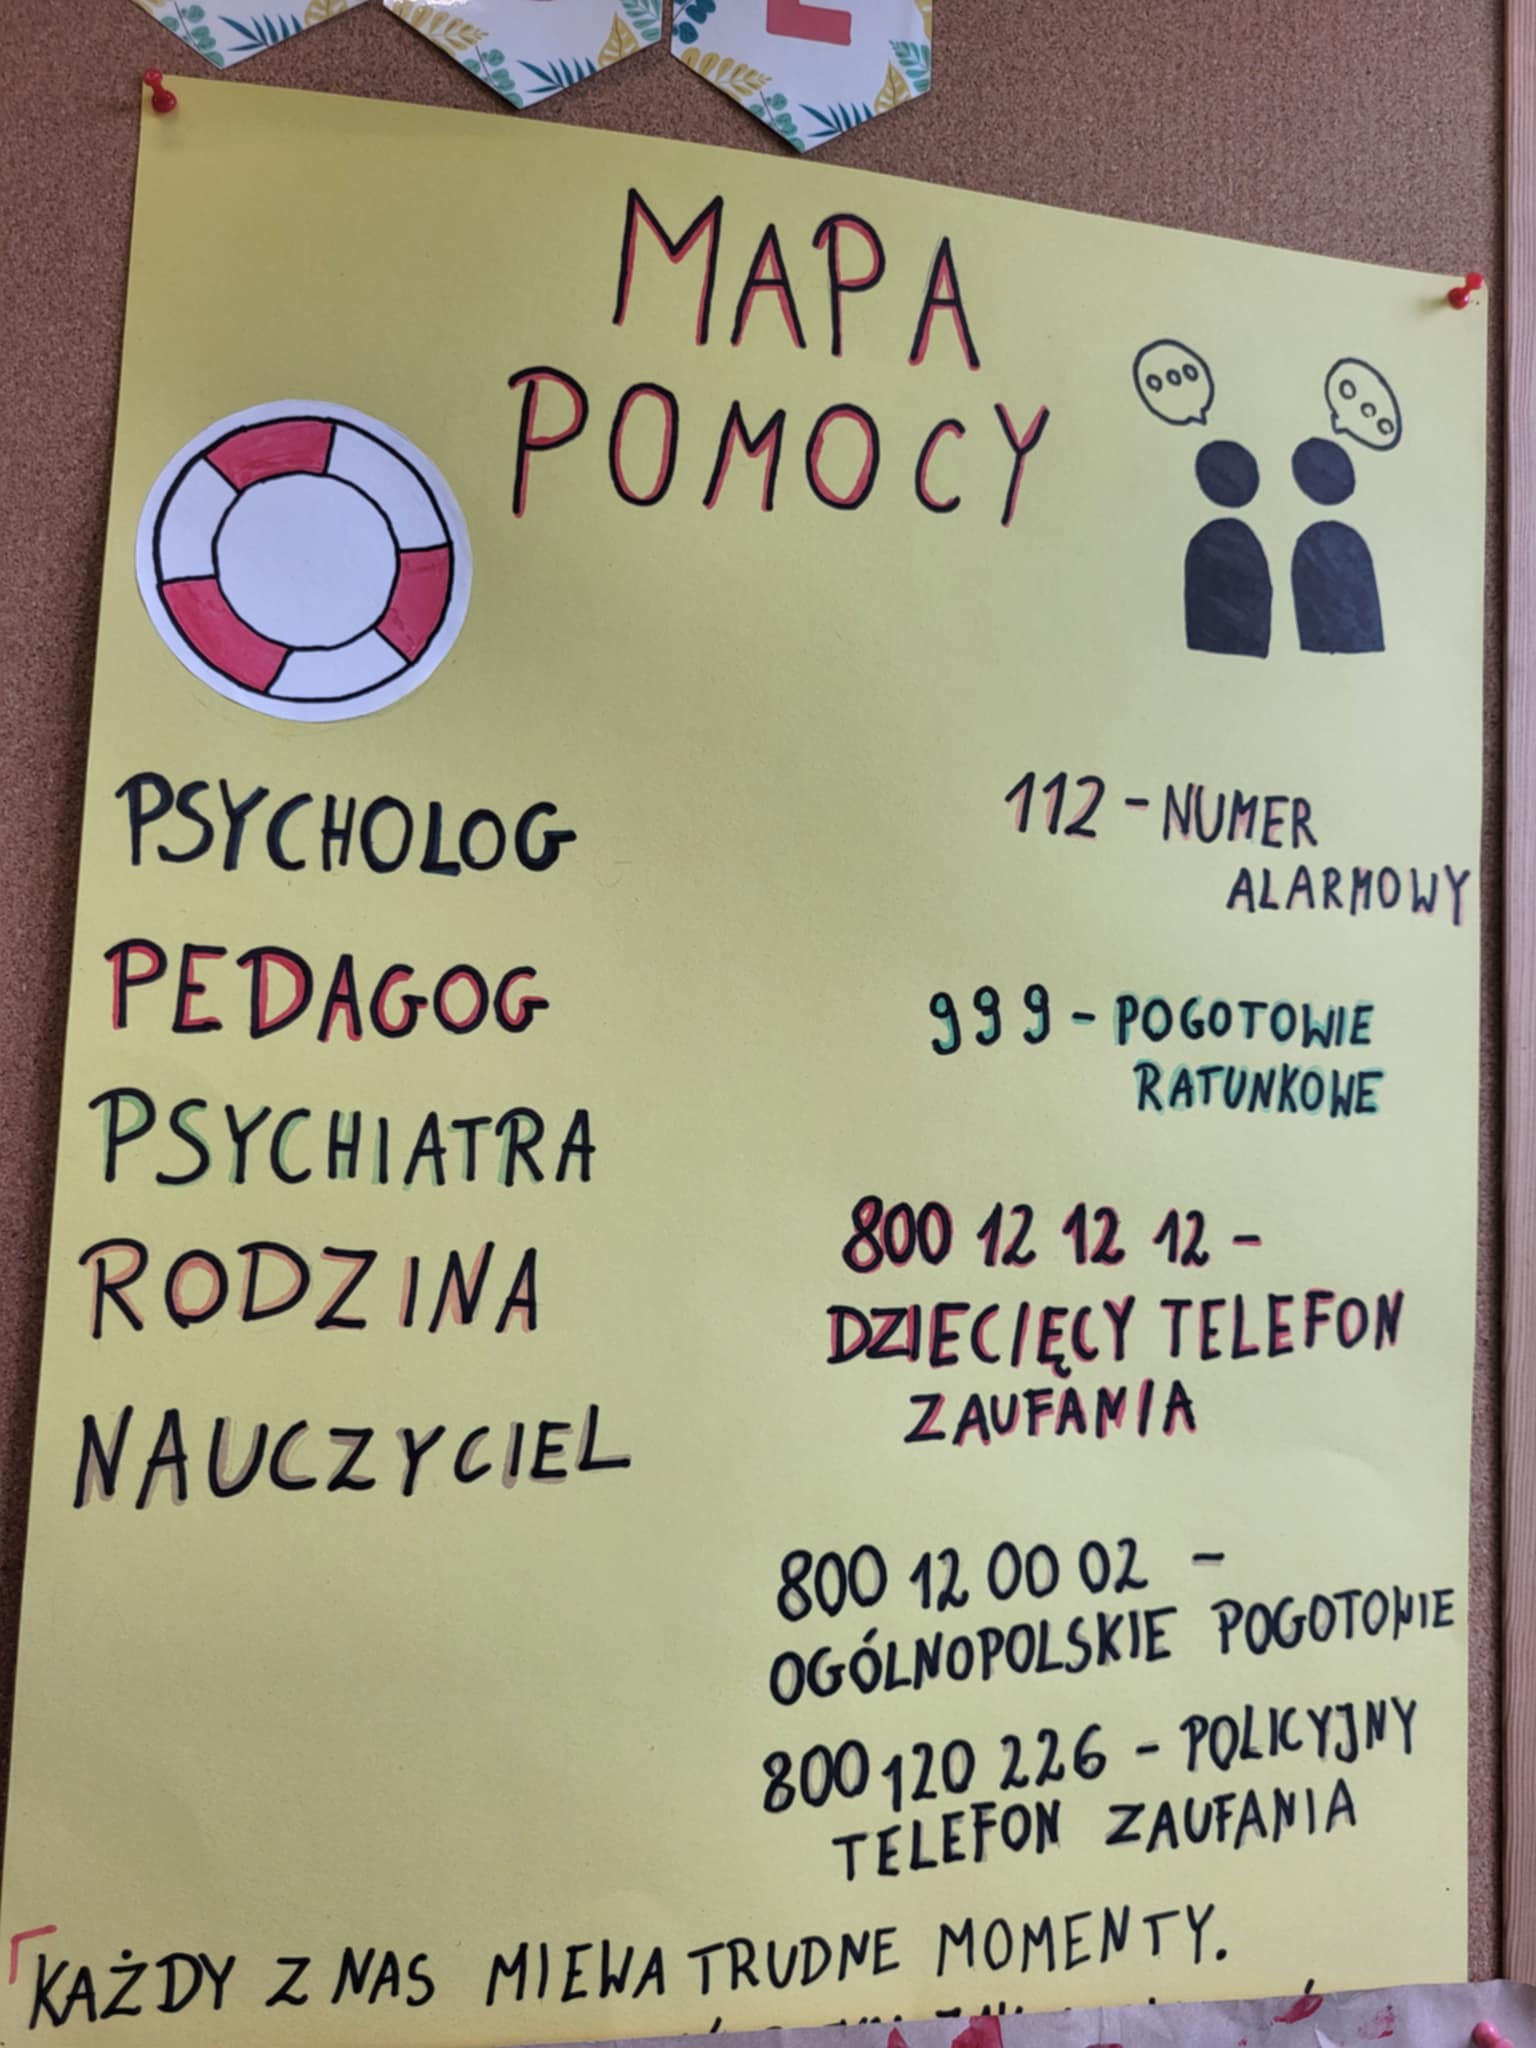 MAPA
POMOCY
PSYCHOLOG
PEDAGOG
PSYCHIATRA
RODZINA
NAUCZYCIEL
112 - NUMER
ALARMOWY
999 - POGOTOWIE
RATUNKOWE
800 12 12 12 -
DZIECIĘCY TELEFON
ZAUFANIA
800 12 00 02 -
OGÓLNOPOLSKIE POGOTOWIE
800 120 226 - POLICYJNY
TELEFON ZAUFANIA
KAŻDY Z NAS MIEWA TRUDNE MOMENTY.